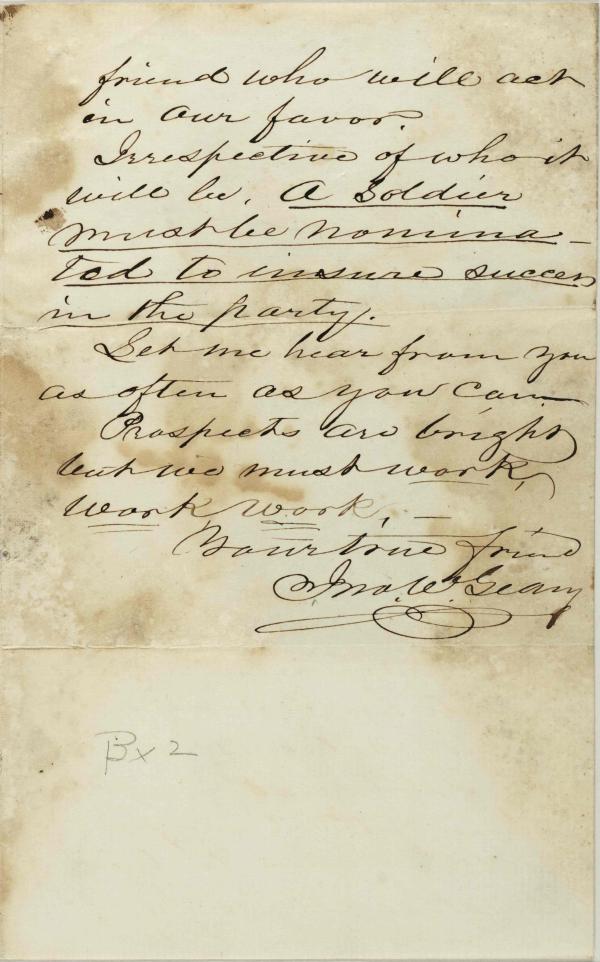 friend who will act
in our favor.
Irrespective of who it
will be, A Soldier
must be nomina-
ted to insure success
in the party.
Let me hear from you
as often as you can
Prospects are bright
but we must work,
work work, —
Your true friend
Jno. W. Geary
Bx 2